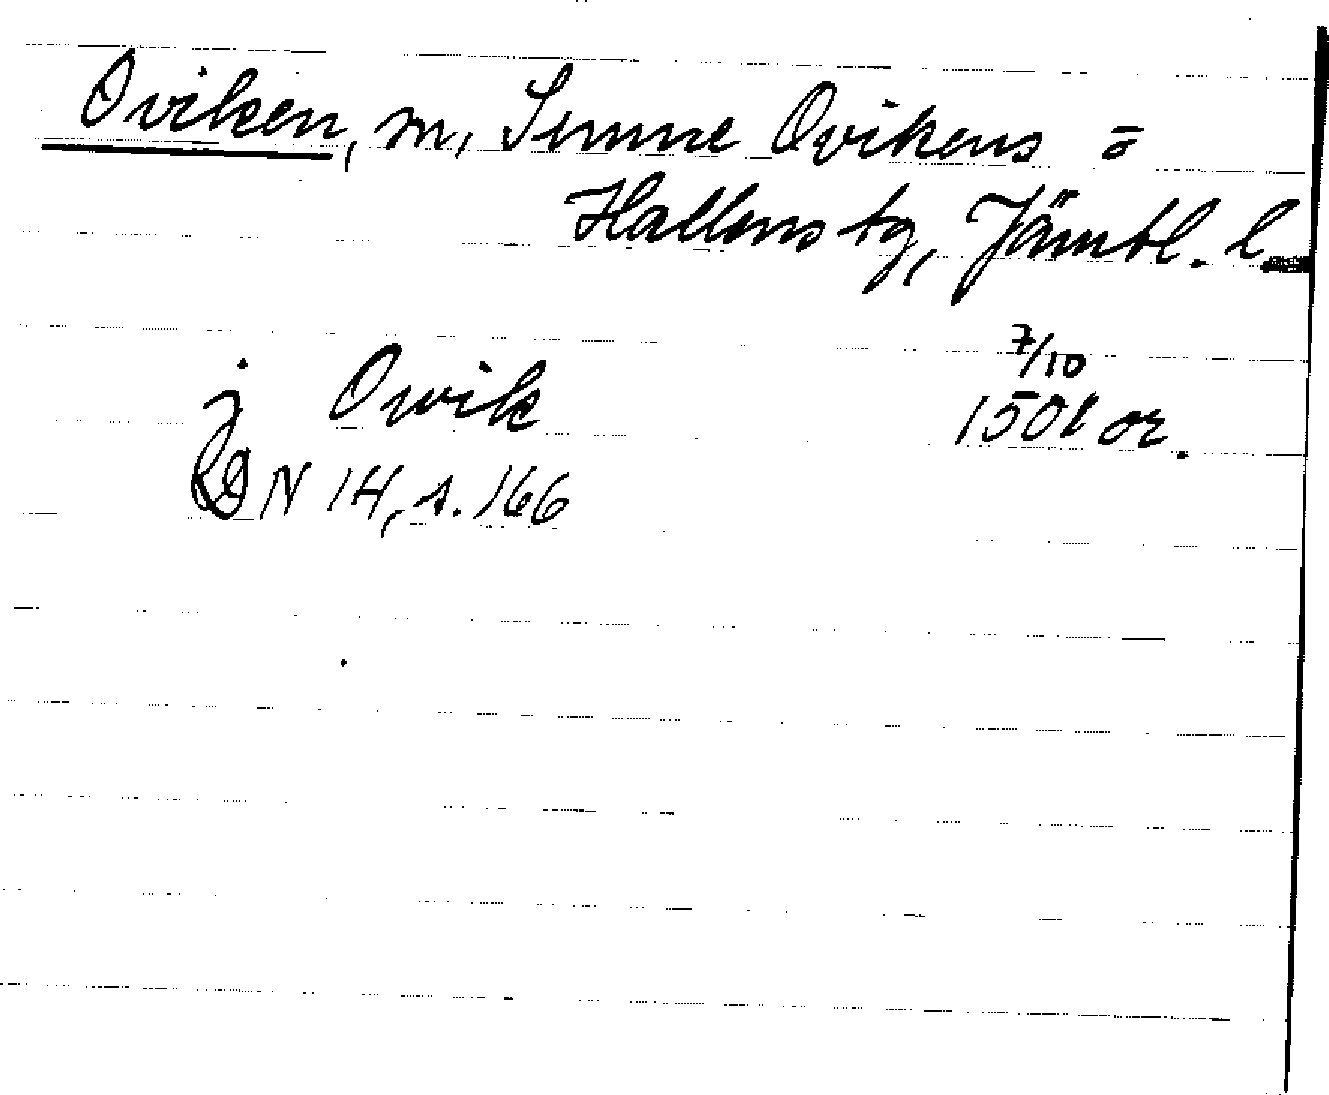 Oviken, m, Sunne Ovikens o
Hallens tg, Jämtl. l
7/10
j Owik 1501 or.
DN 14, s. 166